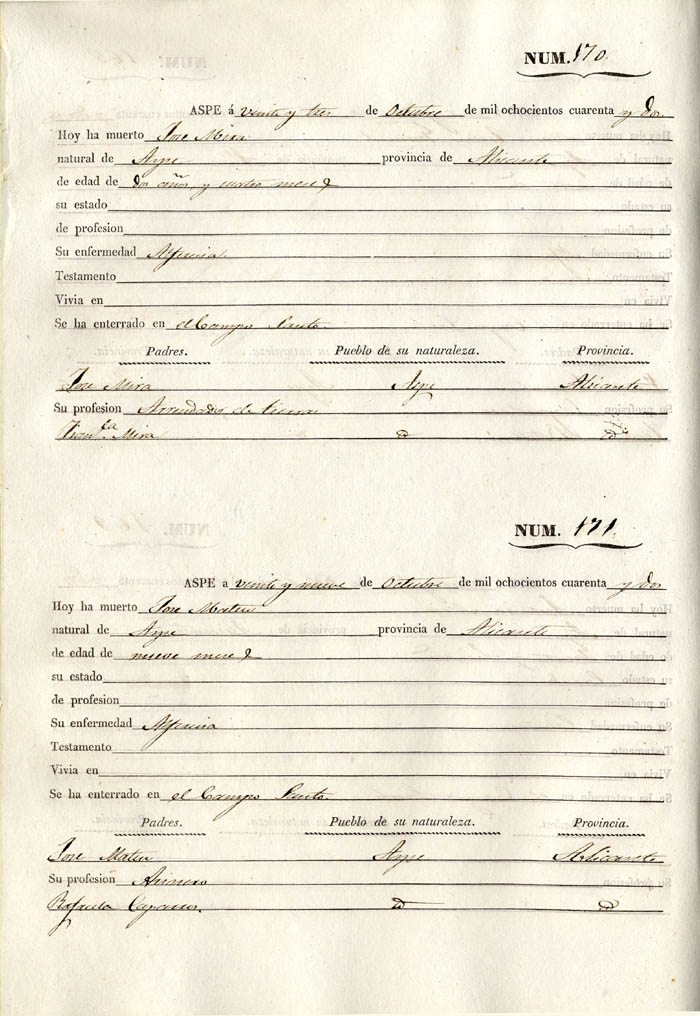 NUM. 170.
ASPE á veinte y tres de Octubre de mil ochocientos cuarenta y dos
Hoy ha muerto Jose Mira
natural de Aspe provincia de Alicante
de edad de dos años y cuatro meses
su estado
de profesion
Su enfermedad Alferecia
Testamento
Vivia en
Se ha enterrado en el Campo Santo.
Padres. Pueblo de su naturaleza. Provincia.
Jose Mira Aspe Alicante
Su profesion Arrendador de tierras
Franca Mira d d
NUM. 171.
ASPE a veinte y nueve de Octubre de mil ochocientos cuarenta y dos
Hoy ha muerto Jose Mateu
natural de Aspe provincia de Alicante
de edad de nueve meses
su estado
de profesion
Su enfermedad Alferecia
Testamento
Vivia en
Se ha enterrado en el Campo Santo.
Padres. Pueblo de su naturaleza. Provincia.
Jose Mateu Aspe Alicante
Su profesión Arriero
Rafaela d d